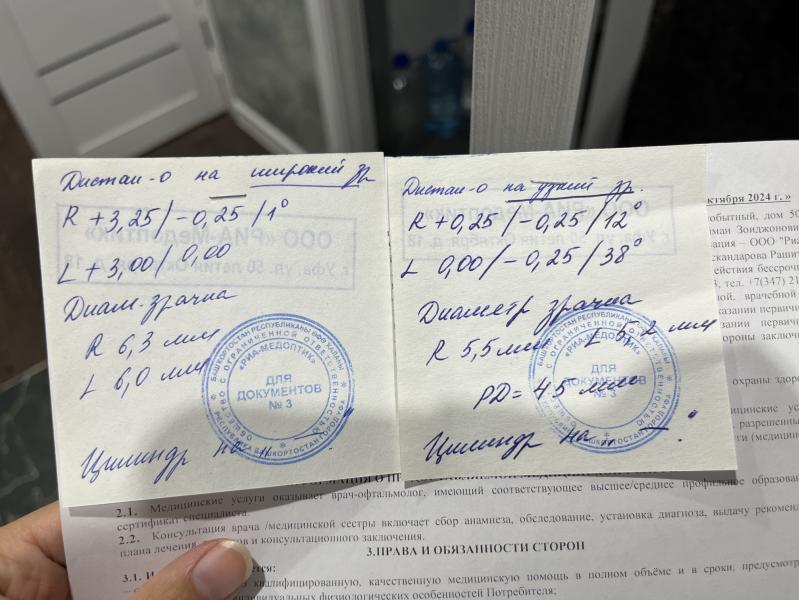 Дистан-о на широкий зр
R +3,25/-0,25/1°
L +3,00/0,00
Диам. зрачка
R 6,3 мм
L 6,0 мм
Цилиндр на „ —"
ООО «РИА-Медоптик»
г. Уфа, ул. 50 летия Октября, д. 18
БАШКОРТОСТАН РЕСПУБЛИКАҺЫ ӨФӨ ҠАЛАҺЫ
ОБЩЕСТВО С ОГРАНИЧЕННОЙ ОТВЕТСТВЕННОСТЬЮ
РЕСПУБЛИКА БАШКОРТОСТАН ГОРОД УФА
«РИА-МЕДОПТИК»
ДЛЯ
ДОКУМЕНТОВ
№ 3
Дистан-о на узкий зр.
R +0,25/-0,25/12°
L 0,00/-0,25/38°
Диаметр зрачка
R 5,5 мм L 5,2 мм
PD= 45 мм
Цилиндр на „ — "
ООО «РИА-Медоптик»
г. Уфа, ул. 50 летия Октября, д. 18
«РИА-МЕДОПТИК»
ДЛЯ
ДОКУМЕНТОВ
№ 3
октября 2024 г. »
обытный, дом 50
иман Зоиджонови
ация – ООО "Риа
скандарова Рашит
действия бессрочн
3, тел. +7(347) 21
ной, врачебной
казании первичн
вании первичн
ороны заключи
охраны здоро
ицинские усл
разрешенны
и (медицин
2.1. Медицинские услуги оказывает врач-офтальмолог, имеющий соответствующее высшее/среднее профильное образован
сертификат специалиста.
2.2. Консультация врача /медицинской сестры включает сбор анамнеза, обследование, установка диагноза, выдачу рекоменд
плана лечения и консультационного заключения.
3.ПРАВА И ОБЯЗАННОСТИ СТОРОН
3.1. И ется:
– квалифицированную, качественную медицинскую помощь в полном объёме и в сроки, предусмотр
индивидуальных физиологических особенностей Потребителя;